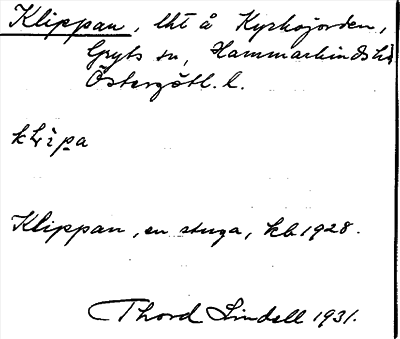 Klippan, lht å Kyrkojorden,
Gryts sn, Hammarkinds hd
Östergötl. l.
klìpa
Klippan, en stuga, kb 1928.
Thord Lindell 1931.